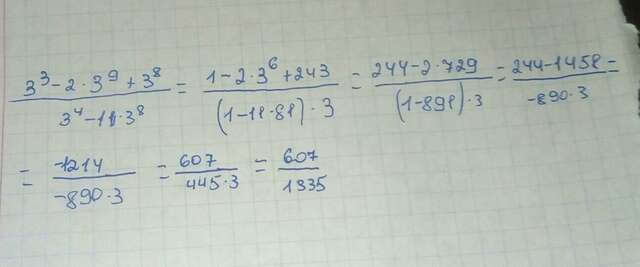 (3³ - 2·3⁹ + 3⁸)/(3⁴ - 11·3⁸) = (1 - 2·3⁶ + 243)/((1 - 11·81)·3) = (244 - 2·729)/((1 - 891)·3) = (244 - 1458)/(-890·3) =
= (-1214)/(-890·3) = 607/(445·3) = 607/1335